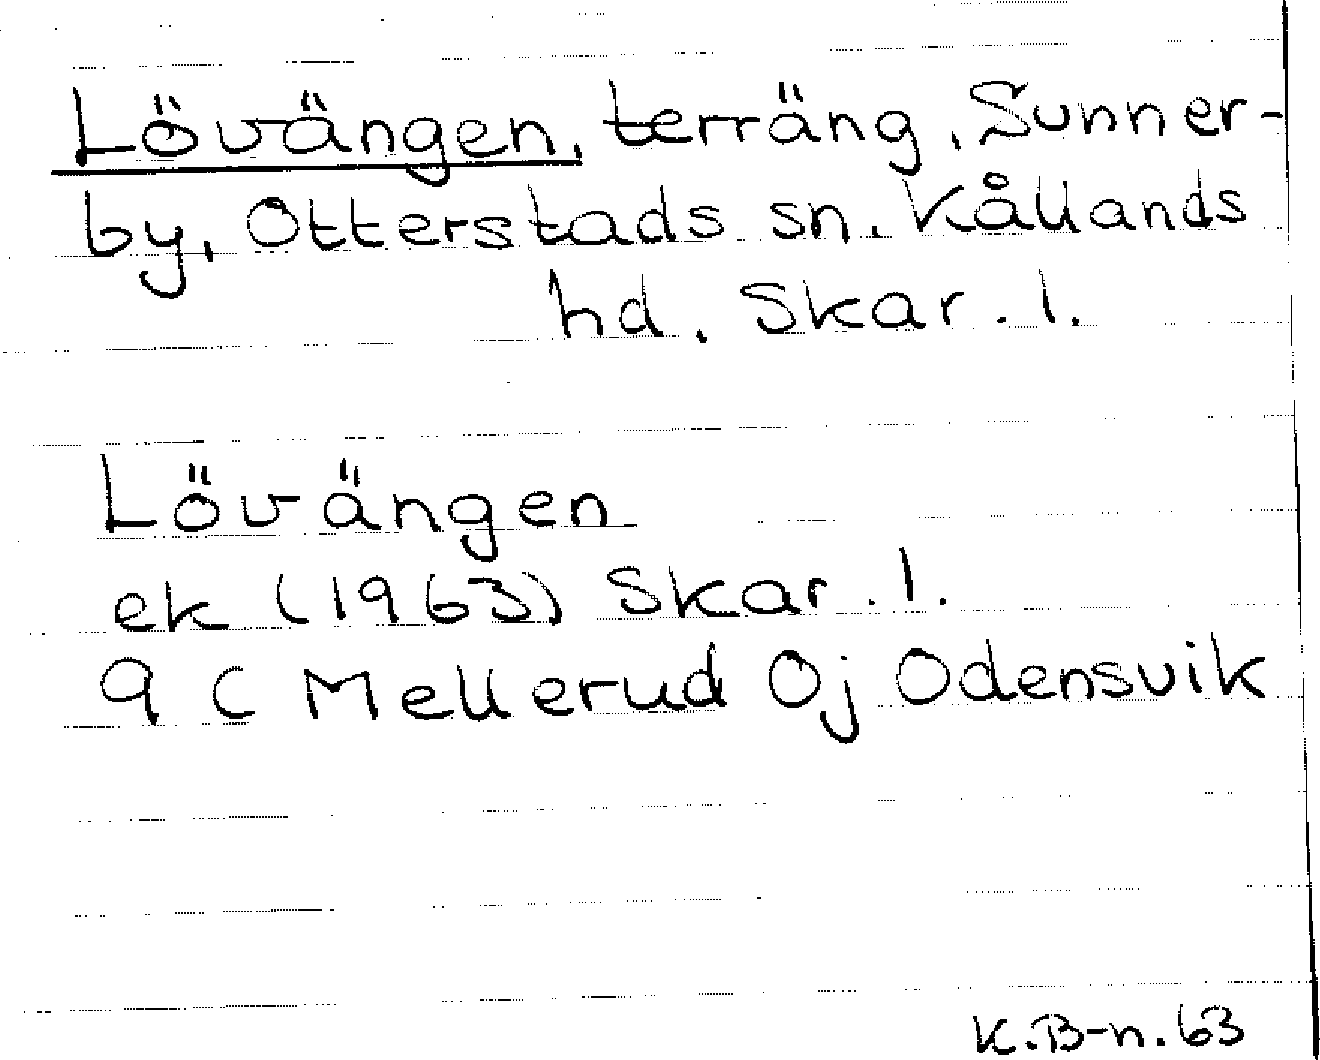 Lövängen, terräng, Sunner-
by, Otterstads sn. Kållands
hd. Skar. l.
Lövängen
ek (1963) Skar. l.
9 C Mellerud Oj Odensvik
K.B-n. 63